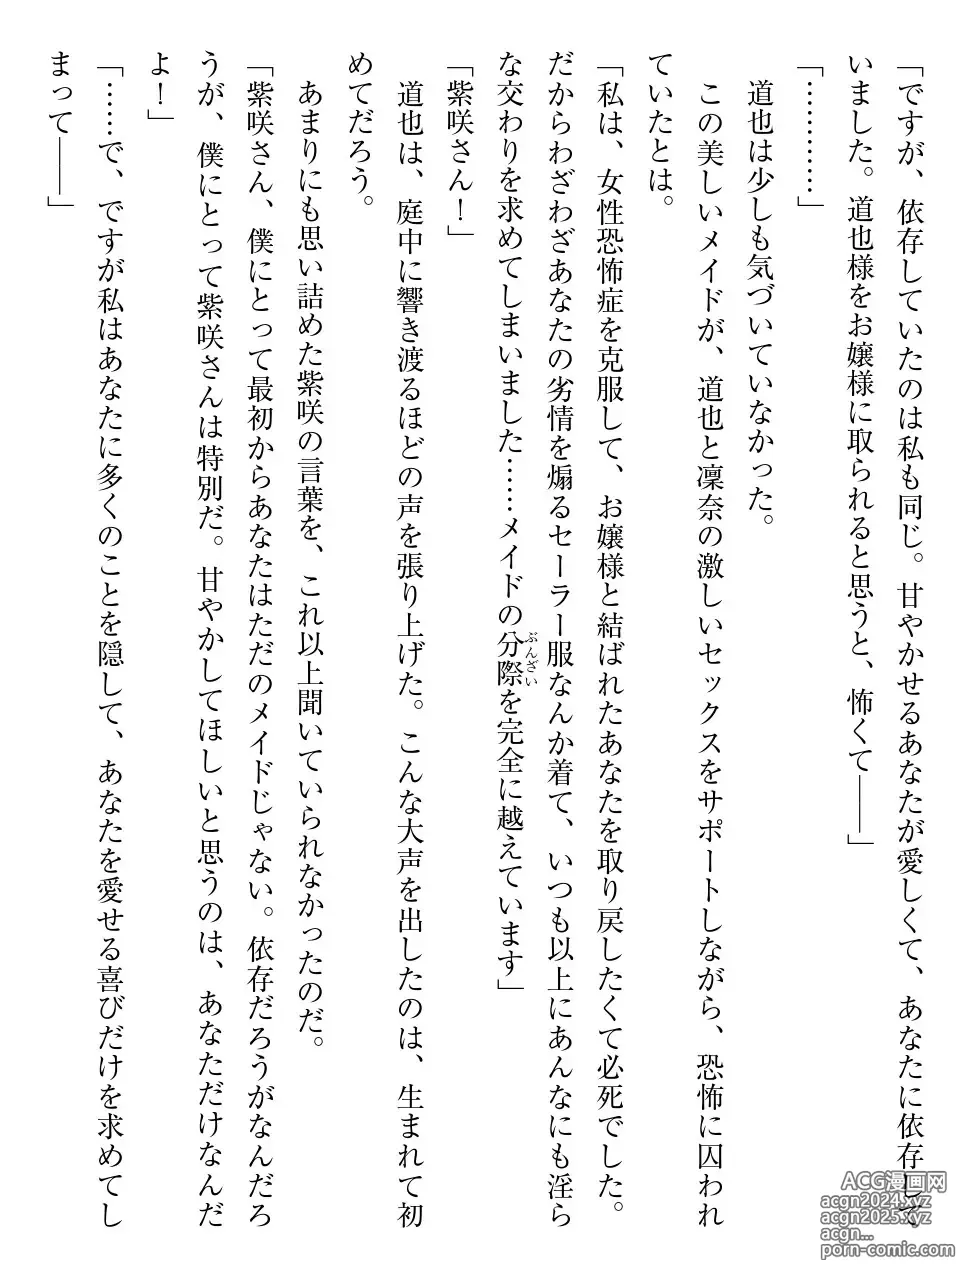 「ですが、依存していたのは私も同じ。甘やかせるあなたが愛しくて、あなたに依存して
いました。道也様をお嬢様に取られると思うと、怖くて――」
「…………」
道也は少しも気づいていなかった。
この美しいメイドが、道也と凜奈の激しいセックスをサポートしながら、恐怖に囚われ
ていたとは。
「私は、女性恐怖症を克服して、お嬢様と結ばれたあなたを取り戻したくて必死でした。
だからわざわざあなたの劣情を煽るセーラー服なんか着て、いつも以上にあんなにも淫ら
な交わりを求めてしまいました……メイドの分際を完全に越えています」
ぶんざい
「紫咲さん！」
道也は、庭中に響き渡るほどの声を張り上げた。こんな大声を出したのは、生まれて初
めてだろう。
あまりにも思い詰めた紫咲の言葉を、これ以上聞いていられなかったのだ。
「紫咲さん、僕にとって最初からあなたはただのメイドじゃない。依存だろうがなんだろ
うが、僕にとって紫咲さんは特別だ。甘やかしてほしいと思うのは、あなただけなんだ
よ！」
「……で、ですが私はあなたに多くのことを隠して、あなたを愛せる喜びだけを求めてし
まって――」
ACG漫画网
acgn2024.xyz
acgn2025.xyz
acgn...
porn-comic.com